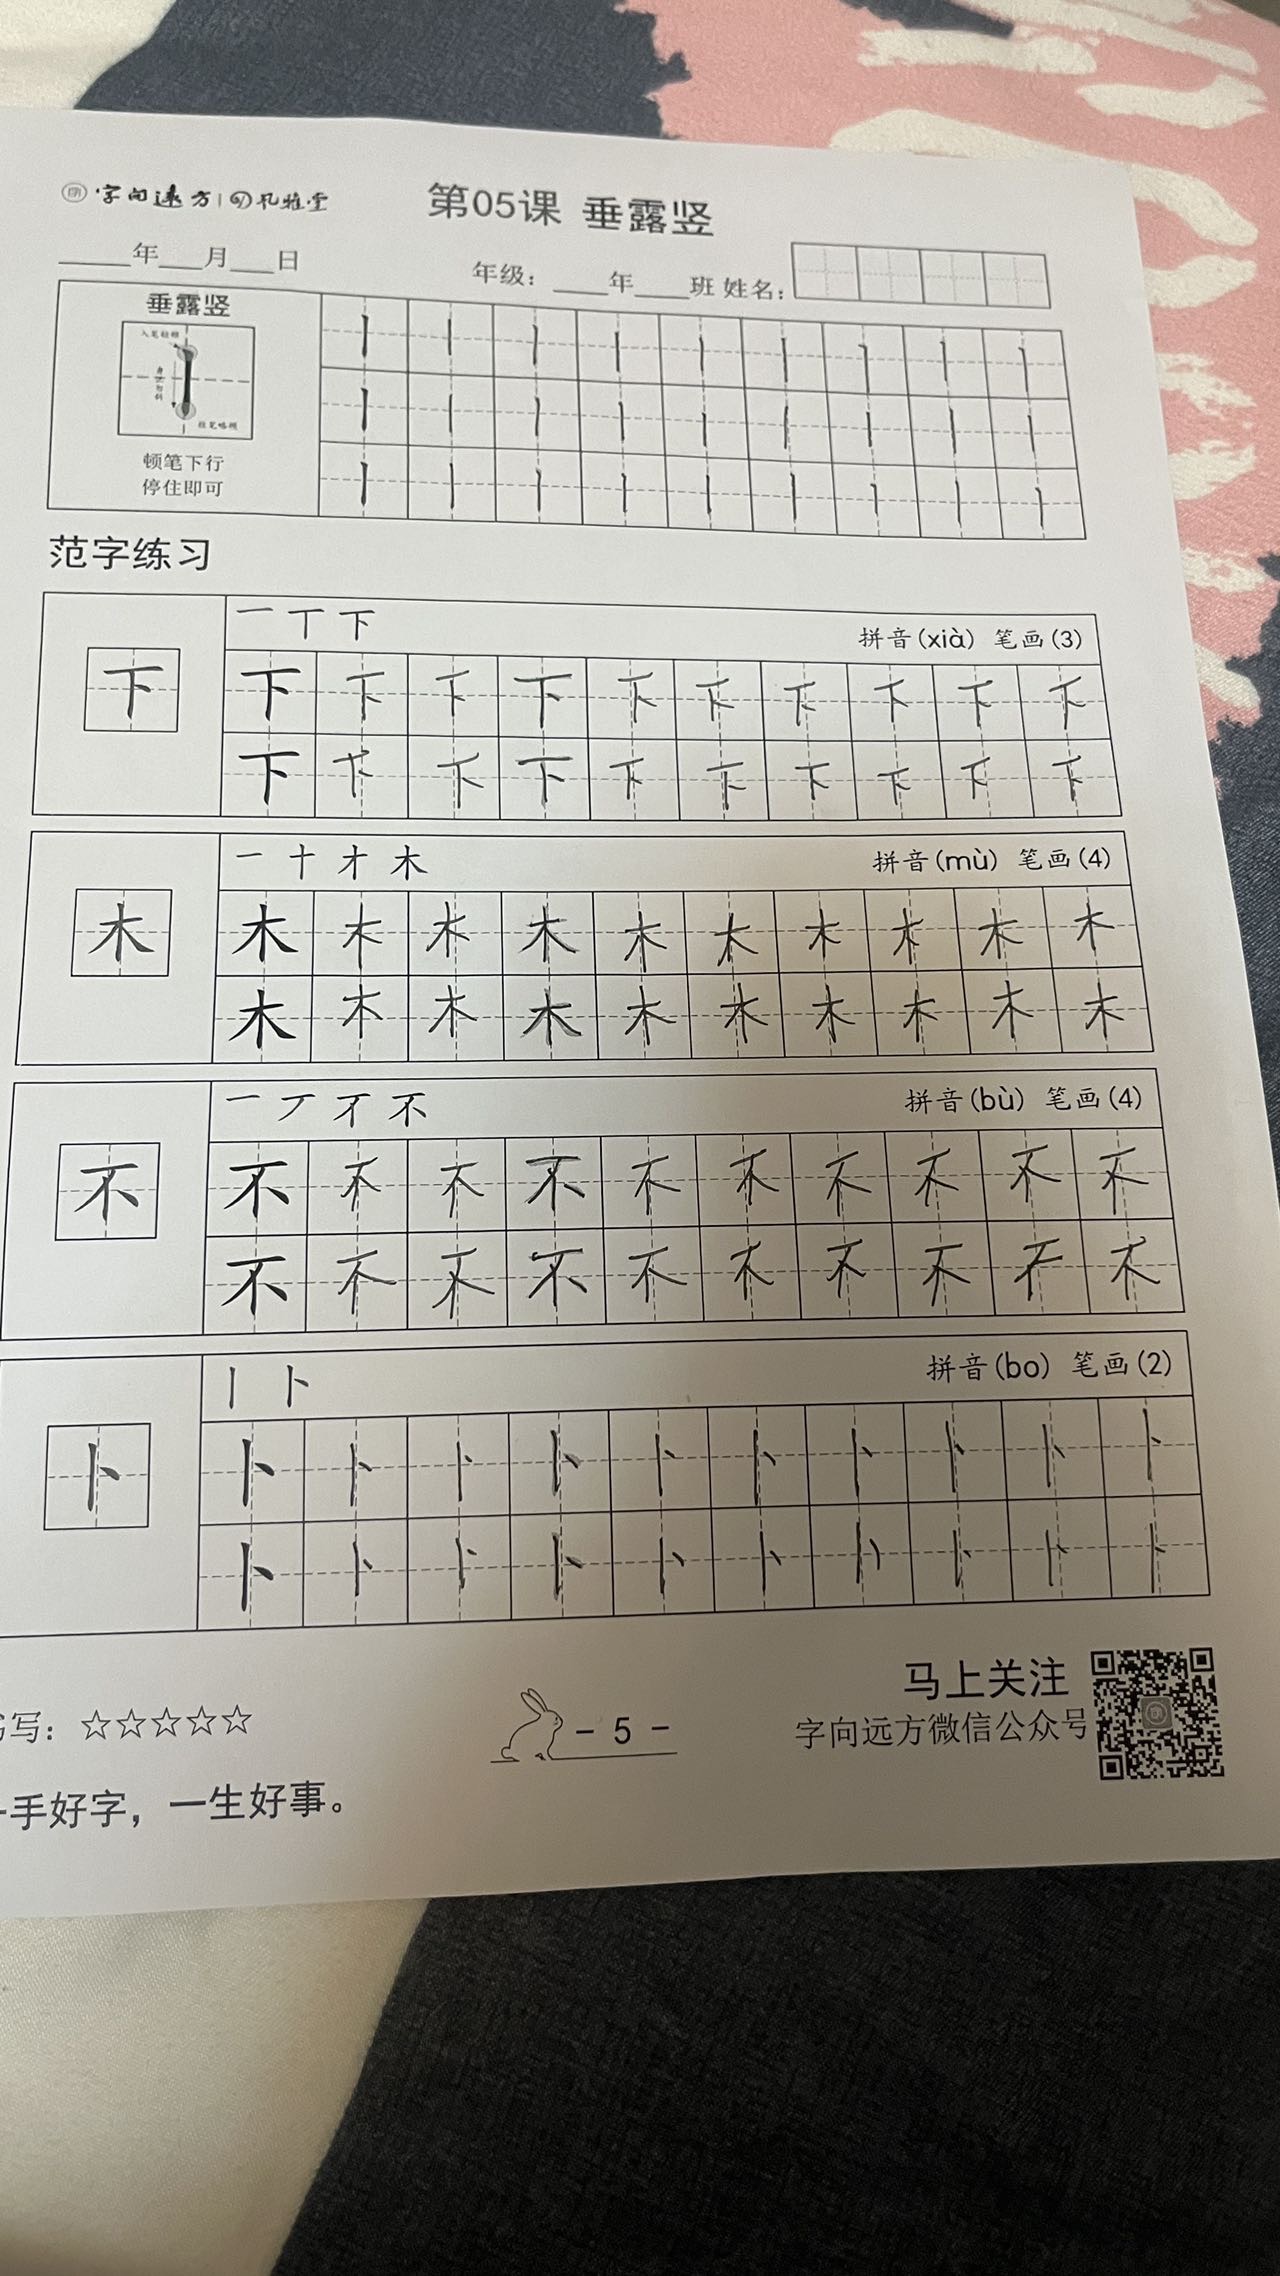 字向远方 孔雅堂 第05课 垂露竖
年 月 日 年级： 年 班 姓名：
垂露竖
顿笔下行
停住即可
范字练习
一 丅 下 拼音(xià) 笔画(3)
下 下 下 下 下 下 下 下 下 下 下
下 下 下 下 下 下 下 下 下 下
一 十 才 木 拼音(mù) 笔画(4)
木 木 木 木 木 木 木 木 木 木 木
木 木 木 木 木 木 木 木 木 木
一 丆 不 拼音(bù) 笔画(4)
不 不 不 不 不 不 不 不 不 不 不
不 不 不 不 不 不 不 不 不 不
丨 卜 拼音(bo) 笔画(2)
卜 卜 卜 卜 卜 卜 卜 卜 卜 卜 卜
卜 卜 卜 卜 卜 卜 卜 卜 卜 卜
马上关注
写：☆☆☆☆☆ - 5 - 字向远方微信公众号
手好字，一生好事。